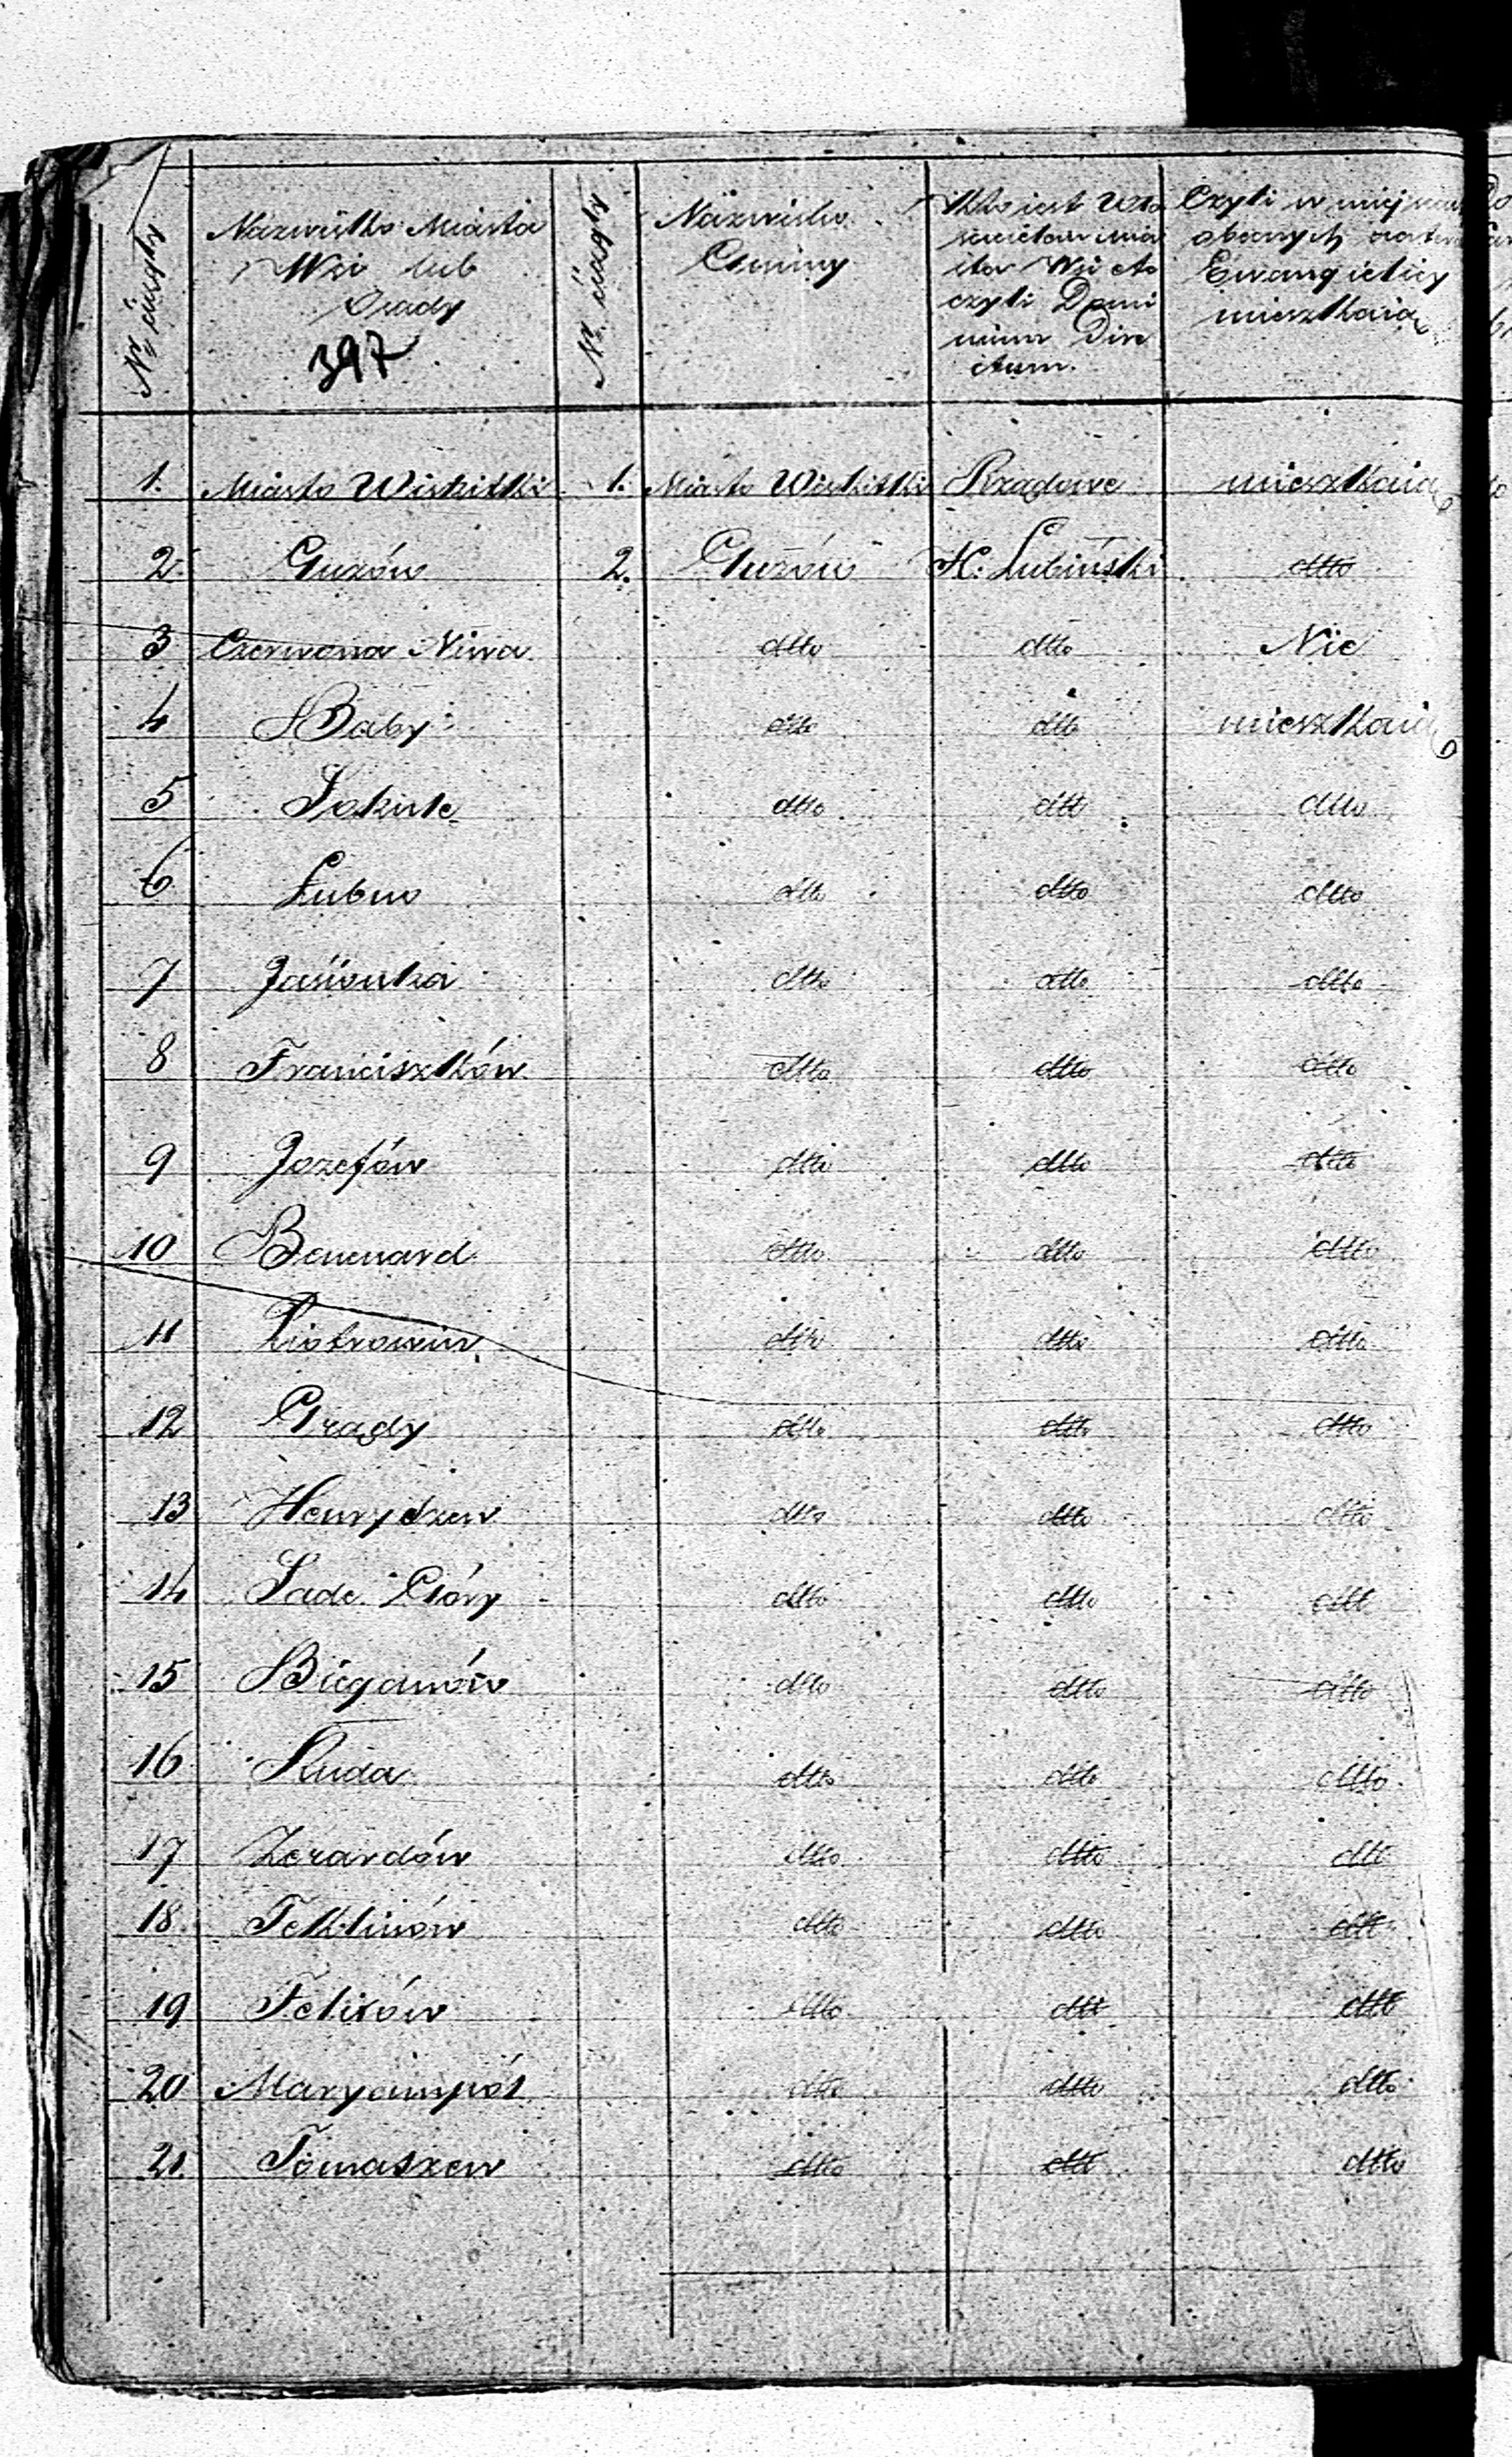 Nr ciągły
Nazwisko Miasta
Wsi lub
Osady
397
Nr ciągły
Nazwisko
Gminy
Kto jest Wła
ścicielem mia
sta Wsi etc
czyli Domi
nium Dire
ctum.
Czyli w miej
obecnych
Ewangielicy
mieszkaią
1. Miasto Wiskitki 1. Miasto Wiskitki Rządowe mieszkaią
2. Guzów 2. Guzów H. Lubiński dtto
3 Czerwona Niwa dtto dtto Nie
4 Baby dtto dtto mieszkaią
5 Sokule dtto dtt dtto
6 Lubno dtto dtto dtto
7 Jasionka dtto dtto dtto
8 Franciszków dtto dtto dtto
9 Jozefów dtto dtto dtto
10 Benenard dtto dtto dtto
11 Piotrowin dtto dtto dtto
12 Grądy dtto dtto dtto
13 Henryszew dtto dtto dtto
14 Sade Góry dtto dtto dtt
15 Bieganów dtto dtto dtto
16 Ruda dtto dtto dtto
17 Żerardów dtto dtto dtt
18. Teklinów dtto dtto dtt
19 Felixów dtto dtt dtt
20 Maryampól dtto dtto dtto
21. Tomaszew dtto dtt dtto